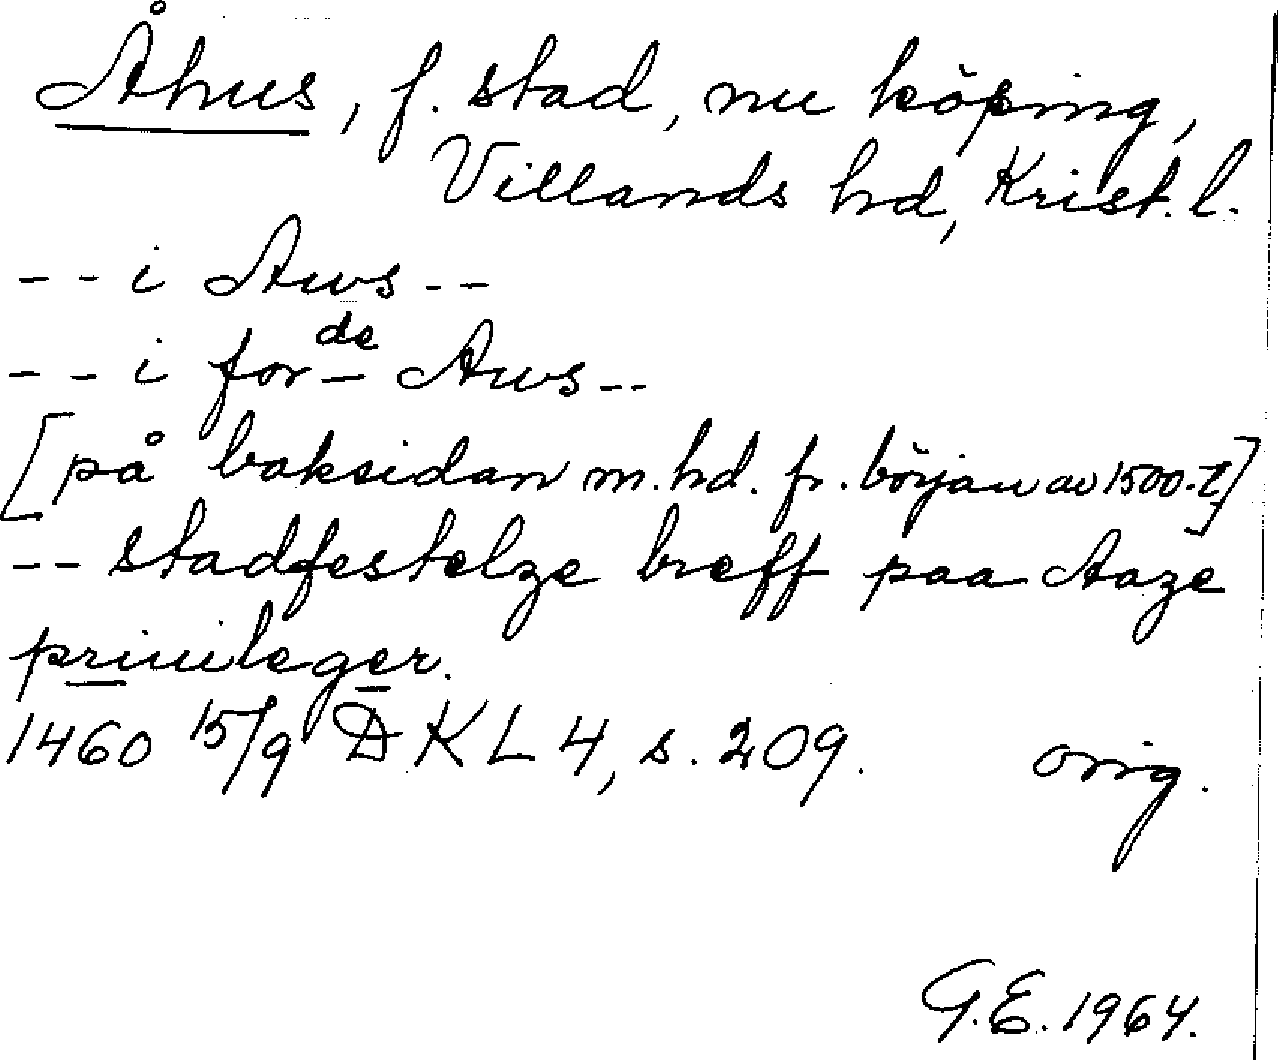 Åhus, f. stad, nu köping,
Villands hd, Krist. l.
-- i Aws --
-- i for de Aws --
[på baksidan m. hd. fr. början av 1500-t]
-- stadfestelze breff paa Aaze
priuileger.
1460 15/9 DKL 4, s. 209. orig.
G.E. 1964.